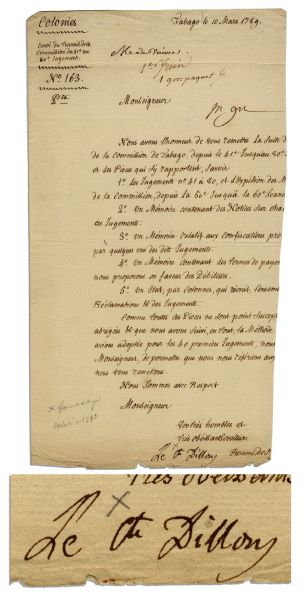 Colonies
Tabago le 10 Mars 1789.
Envoi du Travail de la
Commission du 41e au
80e Jugement.
No 163.
Pta
1 gros paquet 6
Monseigneur
Nous avons l'honneur de vous remettre la Suite d
de la commission de Tabago, depuis le 41e Jusqu'au 80e
et les Pieces qui s'y raportent, Savoir
1o Les Jugements no 41 à 80, et l'Expédition des
de la Commission, depuis la 60e Jusqu'à la
2o Un Mémoire contenant des Notices sur cha
ces Jugements.
3o Un Mémoire relatif aux Confiscations pro
par quelques uns des dits Jugements.
4o Un Mémoire Contenant les termes de paye
nous proposons en faveur des Débiteurs.
5o Un Etat, par Colonnes, qui réunit, l'ensem
Réclamations & des Jugements.
Comme toutes ces Pieces ne sont point susce
abrégées & que nous avons Suivi, en tout, la Méthode
avions adoptée pour les 40 premiers Jugements, nous
Monseigneur, de permettre que nous nous référions aux
nous vous remettons.
Nous Sommes avec Respect
Monseigneur
Vos très humbles et
très obéissants serviteurs
Le Cte Dillon
très obéissants
Le Cte Dillon